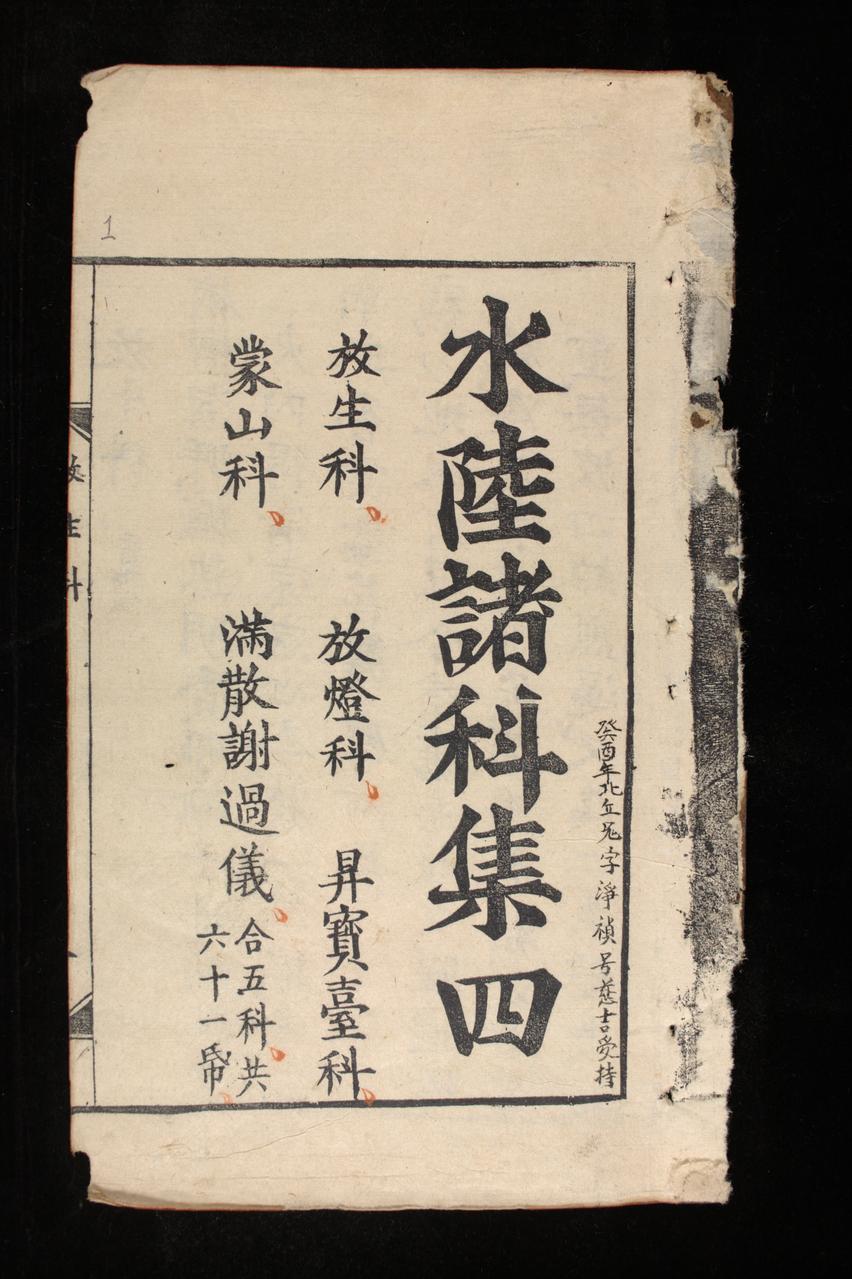 癸酉年比丘兔字淨禎号慈吉受持
水陸諸科集四
放生科、放燈科、昇寶臺科、
蒙山科、滿散謝過儀、
合五科、共
六十一帋、
放生科
1